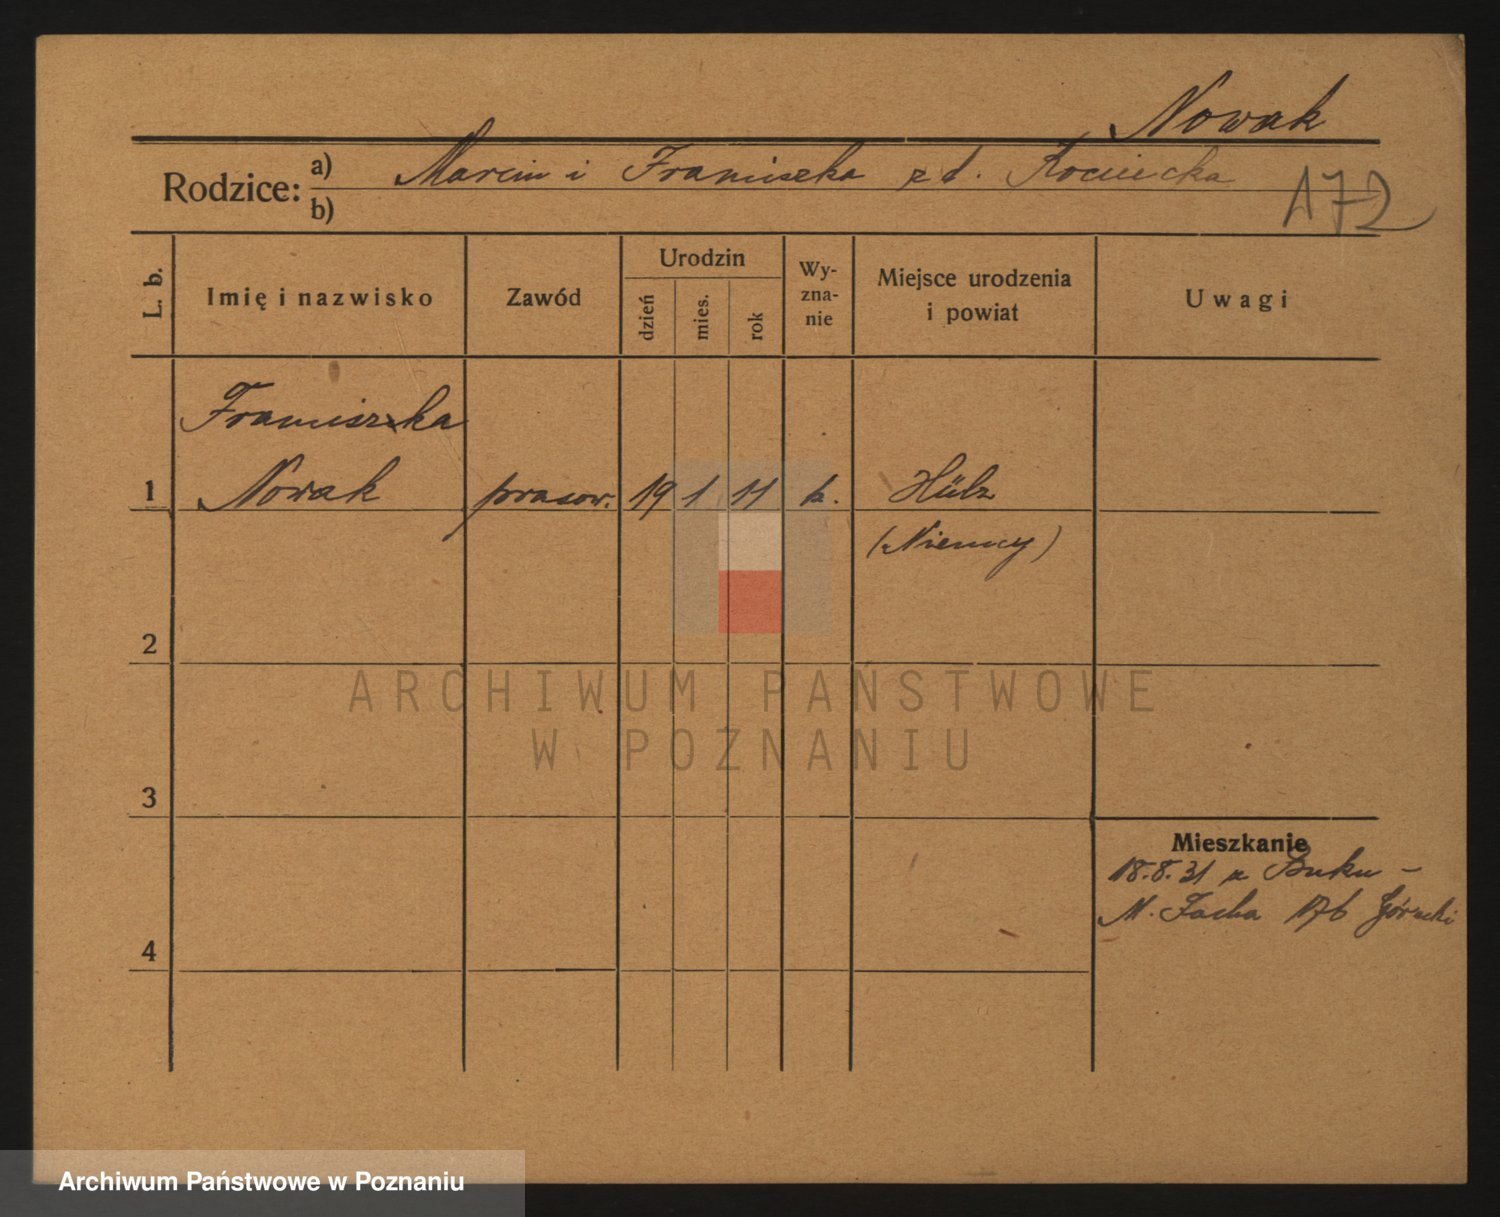 Nowak
Rodzice: a) Marcin i Franciszka z d.
b)
A72
L. b. Imię i nazwisko Zawód Urodzin dzień mies. rok Wy-zna-nie Miejsce urodzenia i powiat Uwagi
Franciszka
1 Nowak prasow. 19 1 11 k. Hüls
(Niemcy)
2
ARCHIWUM PAŃSTWOWE
W POZNANIU
3
Mieszkanie
18.8.31 z Buku -
M. Focha 176
4
Archiwum Państwowe w Poznaniu